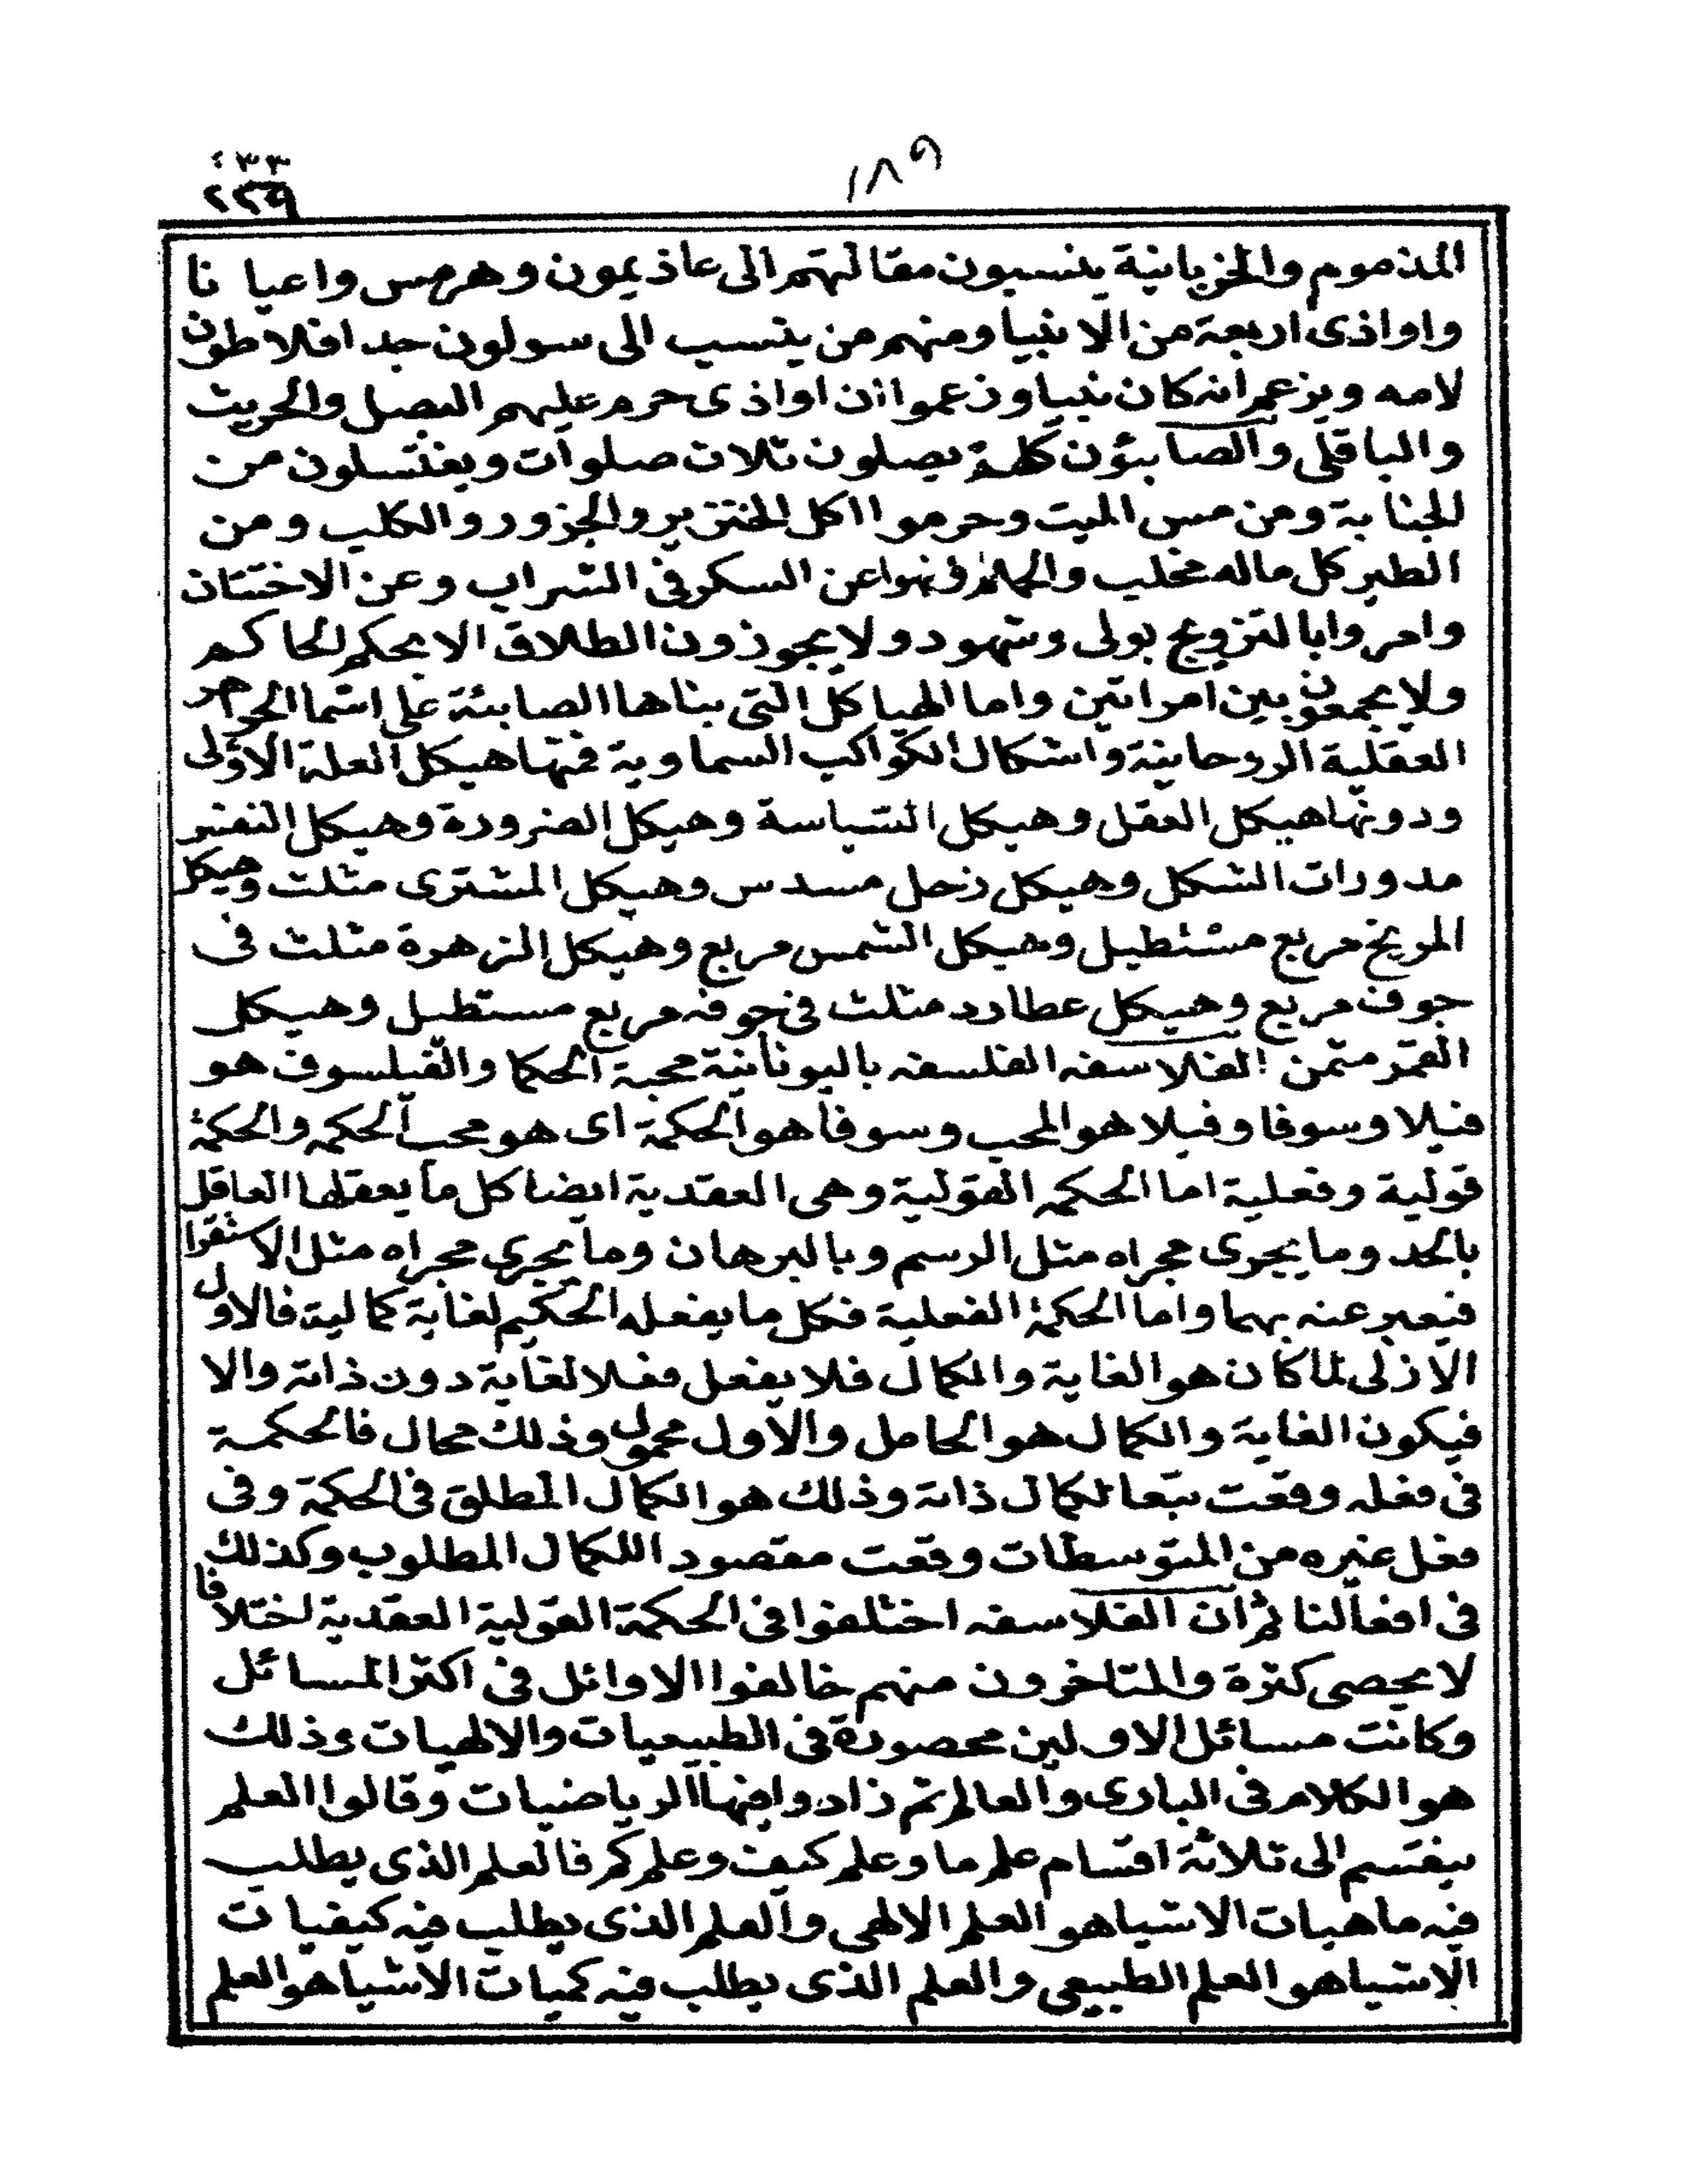 ٤٣٣
١٨٩
٢٢٩
المذموم والخزبانية ينسبون مقالتهم الى عاذيمون وهرمس واعيانا
واواذى اربعة من الانبيا ومنهم من ينسب الى سولون جد افلاطون
لامه ويزعم انه كان نبيا وزعموا ان اواذى حرم عليهم البصل والجريث
والباقلى والصابئون كلهم يصلون ثلاث صلوات ويغتسلون من
الجنابة ومن مس الميت وحرموا اكل الخنزير والجزور والكلب ومن
الطير كل ماله مخلب والحمام ونهوا عن السكر فى الشراب وعن الاختتان
وامروا بالتزويج بولى وشهود ولا يجوزون الطلاق الا بحكم الحاكم
ولا يجمعون بين امراتين واما الهياكل التى بناها الصابئة على اسما الجواهر
العقلية الروحانية واشكال الكواكب السماوية فمنها هيكل العلة الاولى
ودونها هيكل العقل وهيكل السياسة وهيكل الضرورة وهيكل النفس
مدورات الشكل وهيكل زحل مسدس وهيكل المشترى مثلث وهيكل
المريخ مربع مستطيل وهيكل الشمس مربع وهيكل الزهرة مثلث فى
جوف مربع وهيكل عطارد مثلث فى جوفه مربع مستطيل وهيكل
القمر مثمن الفلاسفه الفلسفه باليونانية محبة الحكما والفيلسوف هو
فيلا وسوفا وفيلا هو المحب وسوفا هو الحكمة اى هو محب الحكمه والحكمة
قولية وفعلية اما الحكمه القولية وهى العقدية ايضا كل ما يعقلها العاقل
بالحد وما يجرى مجراه مثل الرسم وبالبرهان وما يجرى مجراه مثل الاستقرا
فيعبر عنه بهما واما الحكمة الفعلية فكل ما يفعله الحكيم لغاية كمالية فالاول
الازلى لما كان هو الغاية والكمال فلا يفعل فعلا لغاية دون ذاته والا
فيكون الغاية والكمال هو الحامل والاول محمول وذلك محال فالحكمة
فى فعله وقعت تبعا لكمال ذاته وذلك هو الكمال المطلق فى الحكمة وفى
فعل غيره من المتوسطات وقعت مقصود اللكمال المطلوب وكذلك
فى افعالنا ثم ان الفلاسفه اختلفوا فى الحكمة القولية العقدية اختلافا
لا يحصى كثرة والمتاخرون منهم خالفوا الاوائل فى اكثر المسائل
وكانت مسائل الاولين محصورة فى الطبيعيات والالهيات وذلك
هو الكلام فى البارى والعالم ثم زادوا فيها الرياضيات وقالوا العلم
ينقسم الى ثلاثة اقسام علم ما وعلم كيف وعلم كم فالعلم الذى يطلب
فيه ماهيات الاشيا هو العلم الالهى والعلم الذى يطلب فيه كيفيات
الاشيا هو العلم الطبيعى والعلم الذى يطلب فيه كميات الاشيا هو العلم